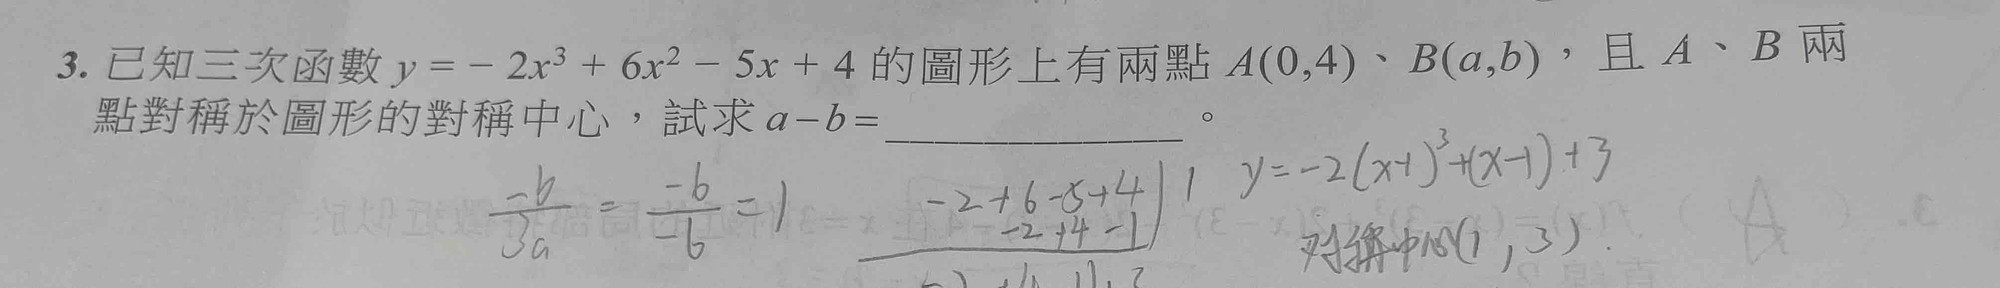 3. 已知三次函數 y = − 2x³ + 6x² − 5x + 4 的圖形上有兩點 A(0,4)、B(a,b)，且 A、B 兩
點對稱於圖形的對稱中心，試求 a−b=____________。
-b/3a = -6/-6 = 1
-2+6-5+4 | 1
-2+4-1
y=-2(x-1)³+(x-1)+3
对稱中心(1,3).